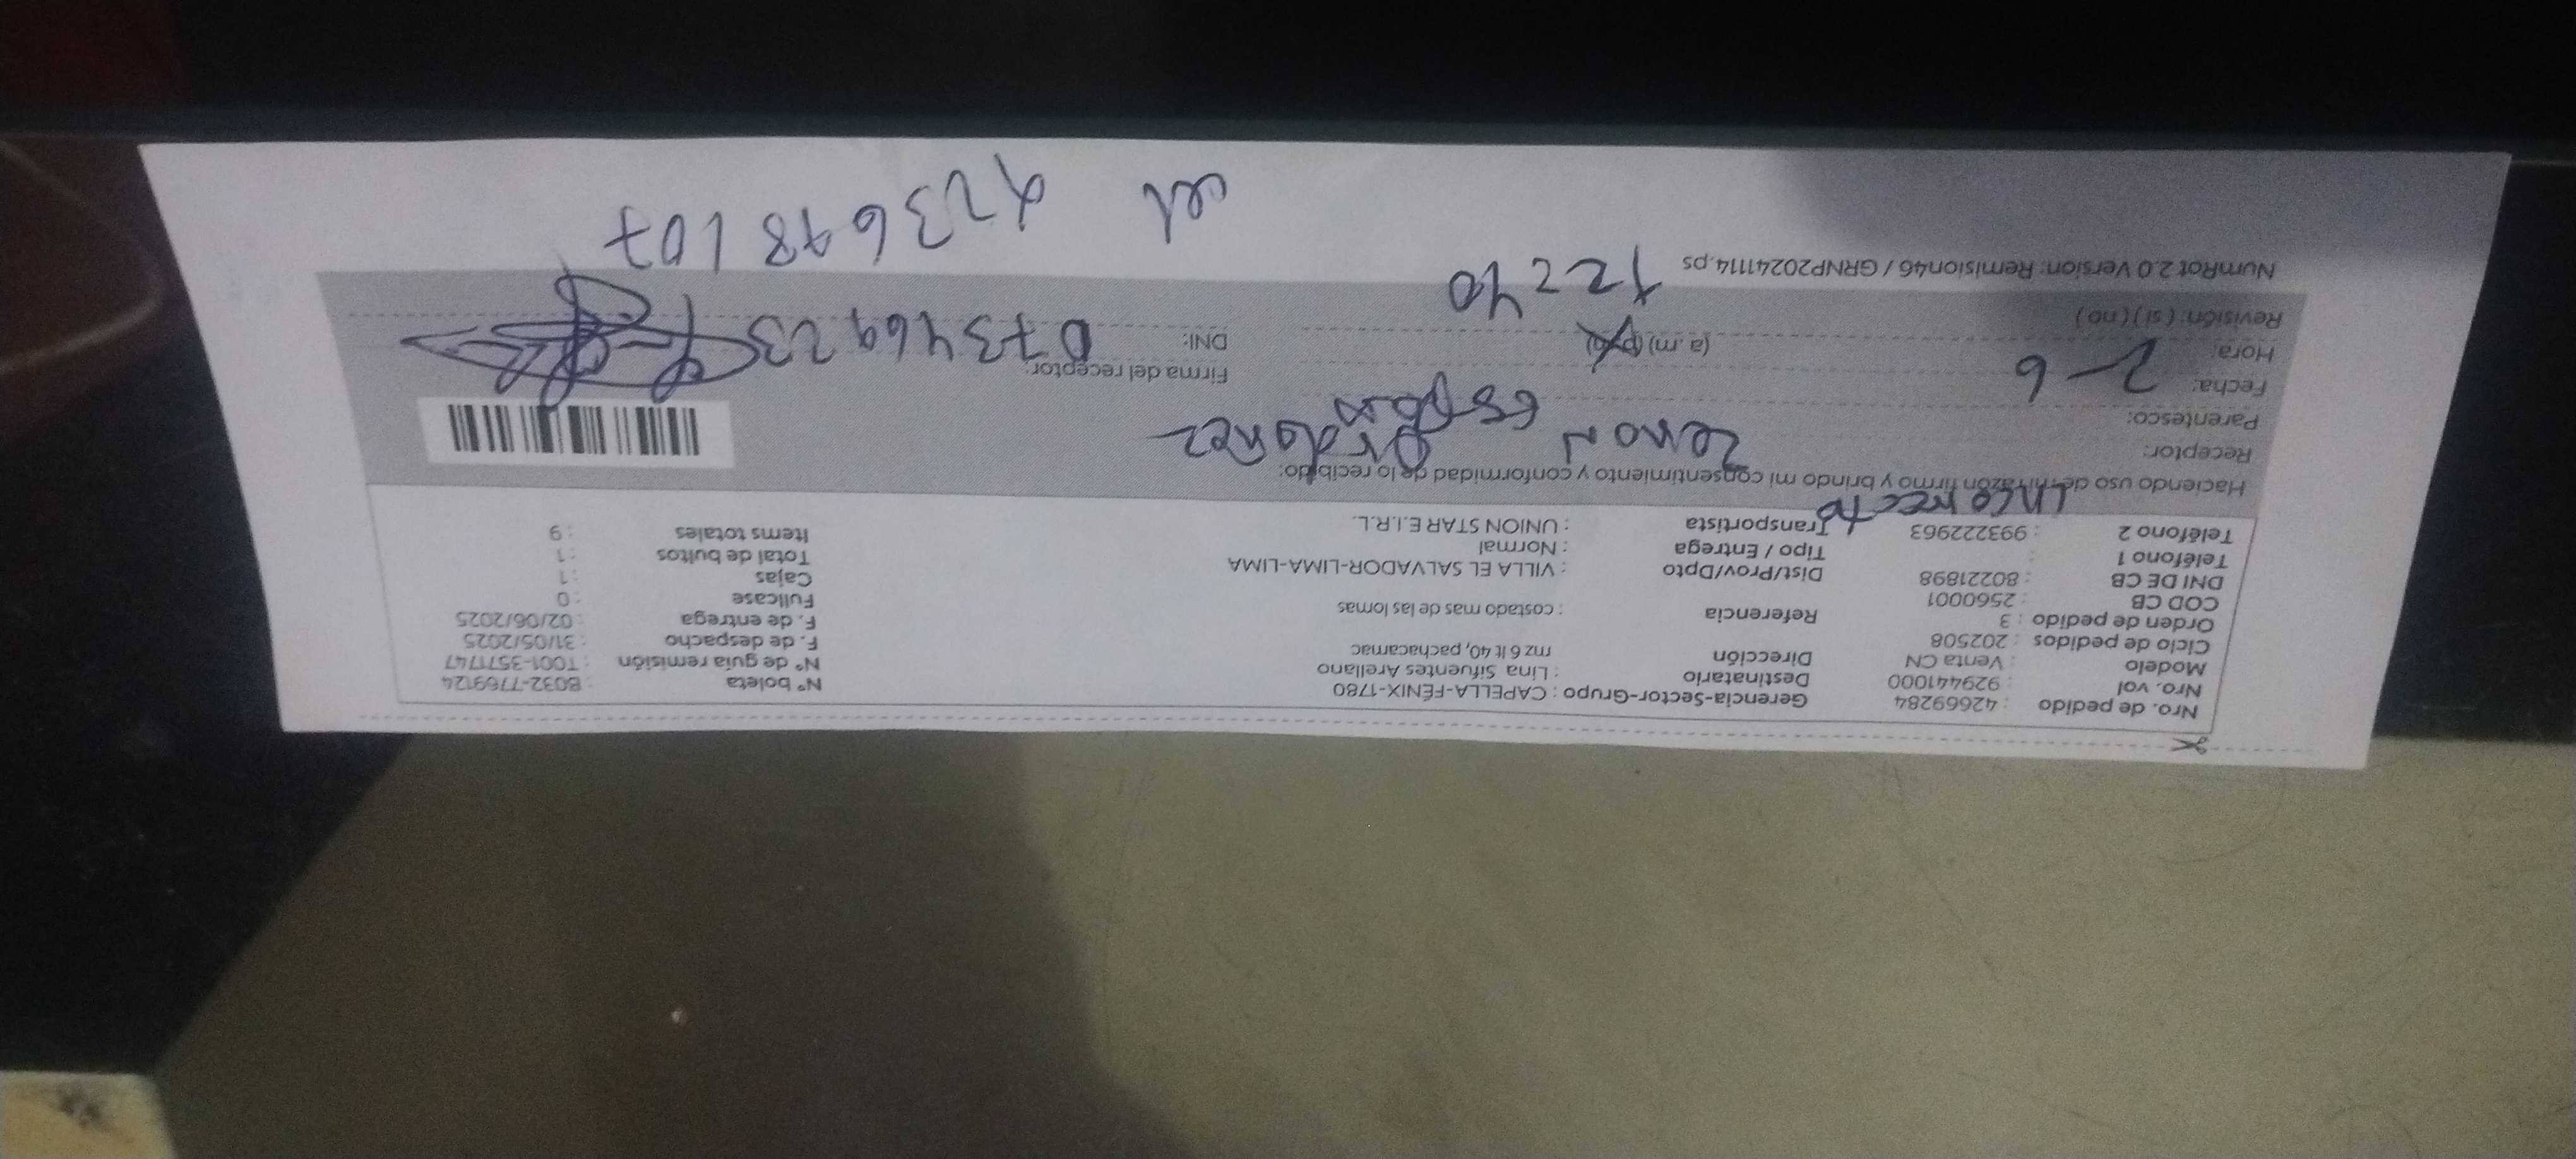 Nro. de pedido : 42669284 Gerencia-Sector-Grupo : CAPELLA-FÉNIX-1780 N° boleta : B032-7769124
Nro. vol : 929441000 Destinatario : Lina Sifuentes Arellano N° de guía remisión : T001-3571747
Modelo : Venta CN Dirección mz 6 lt 40, pachacamac F. de despacho : 31/05/2025
Ciclo de pedidos : 202508 F. de entrega : 02/06/2025
Orden de pedido : 3 Referencia : costado mas de las lomas Fullcase : 0
COD CB : 2560001 Cajas : 1
DNI DE CB : 80221898 Dist/Prov/Dpto : VILLA EL SALVADOR-LIMA-LIMA Total de bultos : 1
Teléfono 1 : Tipo / Entrega : Normal Items totales : 9
Teléfono 2 : 993222963 Transportista : UNION STAR E.I.R.L.
incorrecto
Haciendo uso de mi razón firmo y brindo mi consentimiento y conformidad de lo recibido:
Receptor: Zenon Ordoñez
Parentesco: esposo
Fecha: 2-6 Firma del receptor:
Hora: (a.m) (p.m) DNI: 07346923
Revisión: ( si ) ( no )
12:40
NumRot 2.0 Version: Remision46 / GRNP20241114.ps
cel 923698107